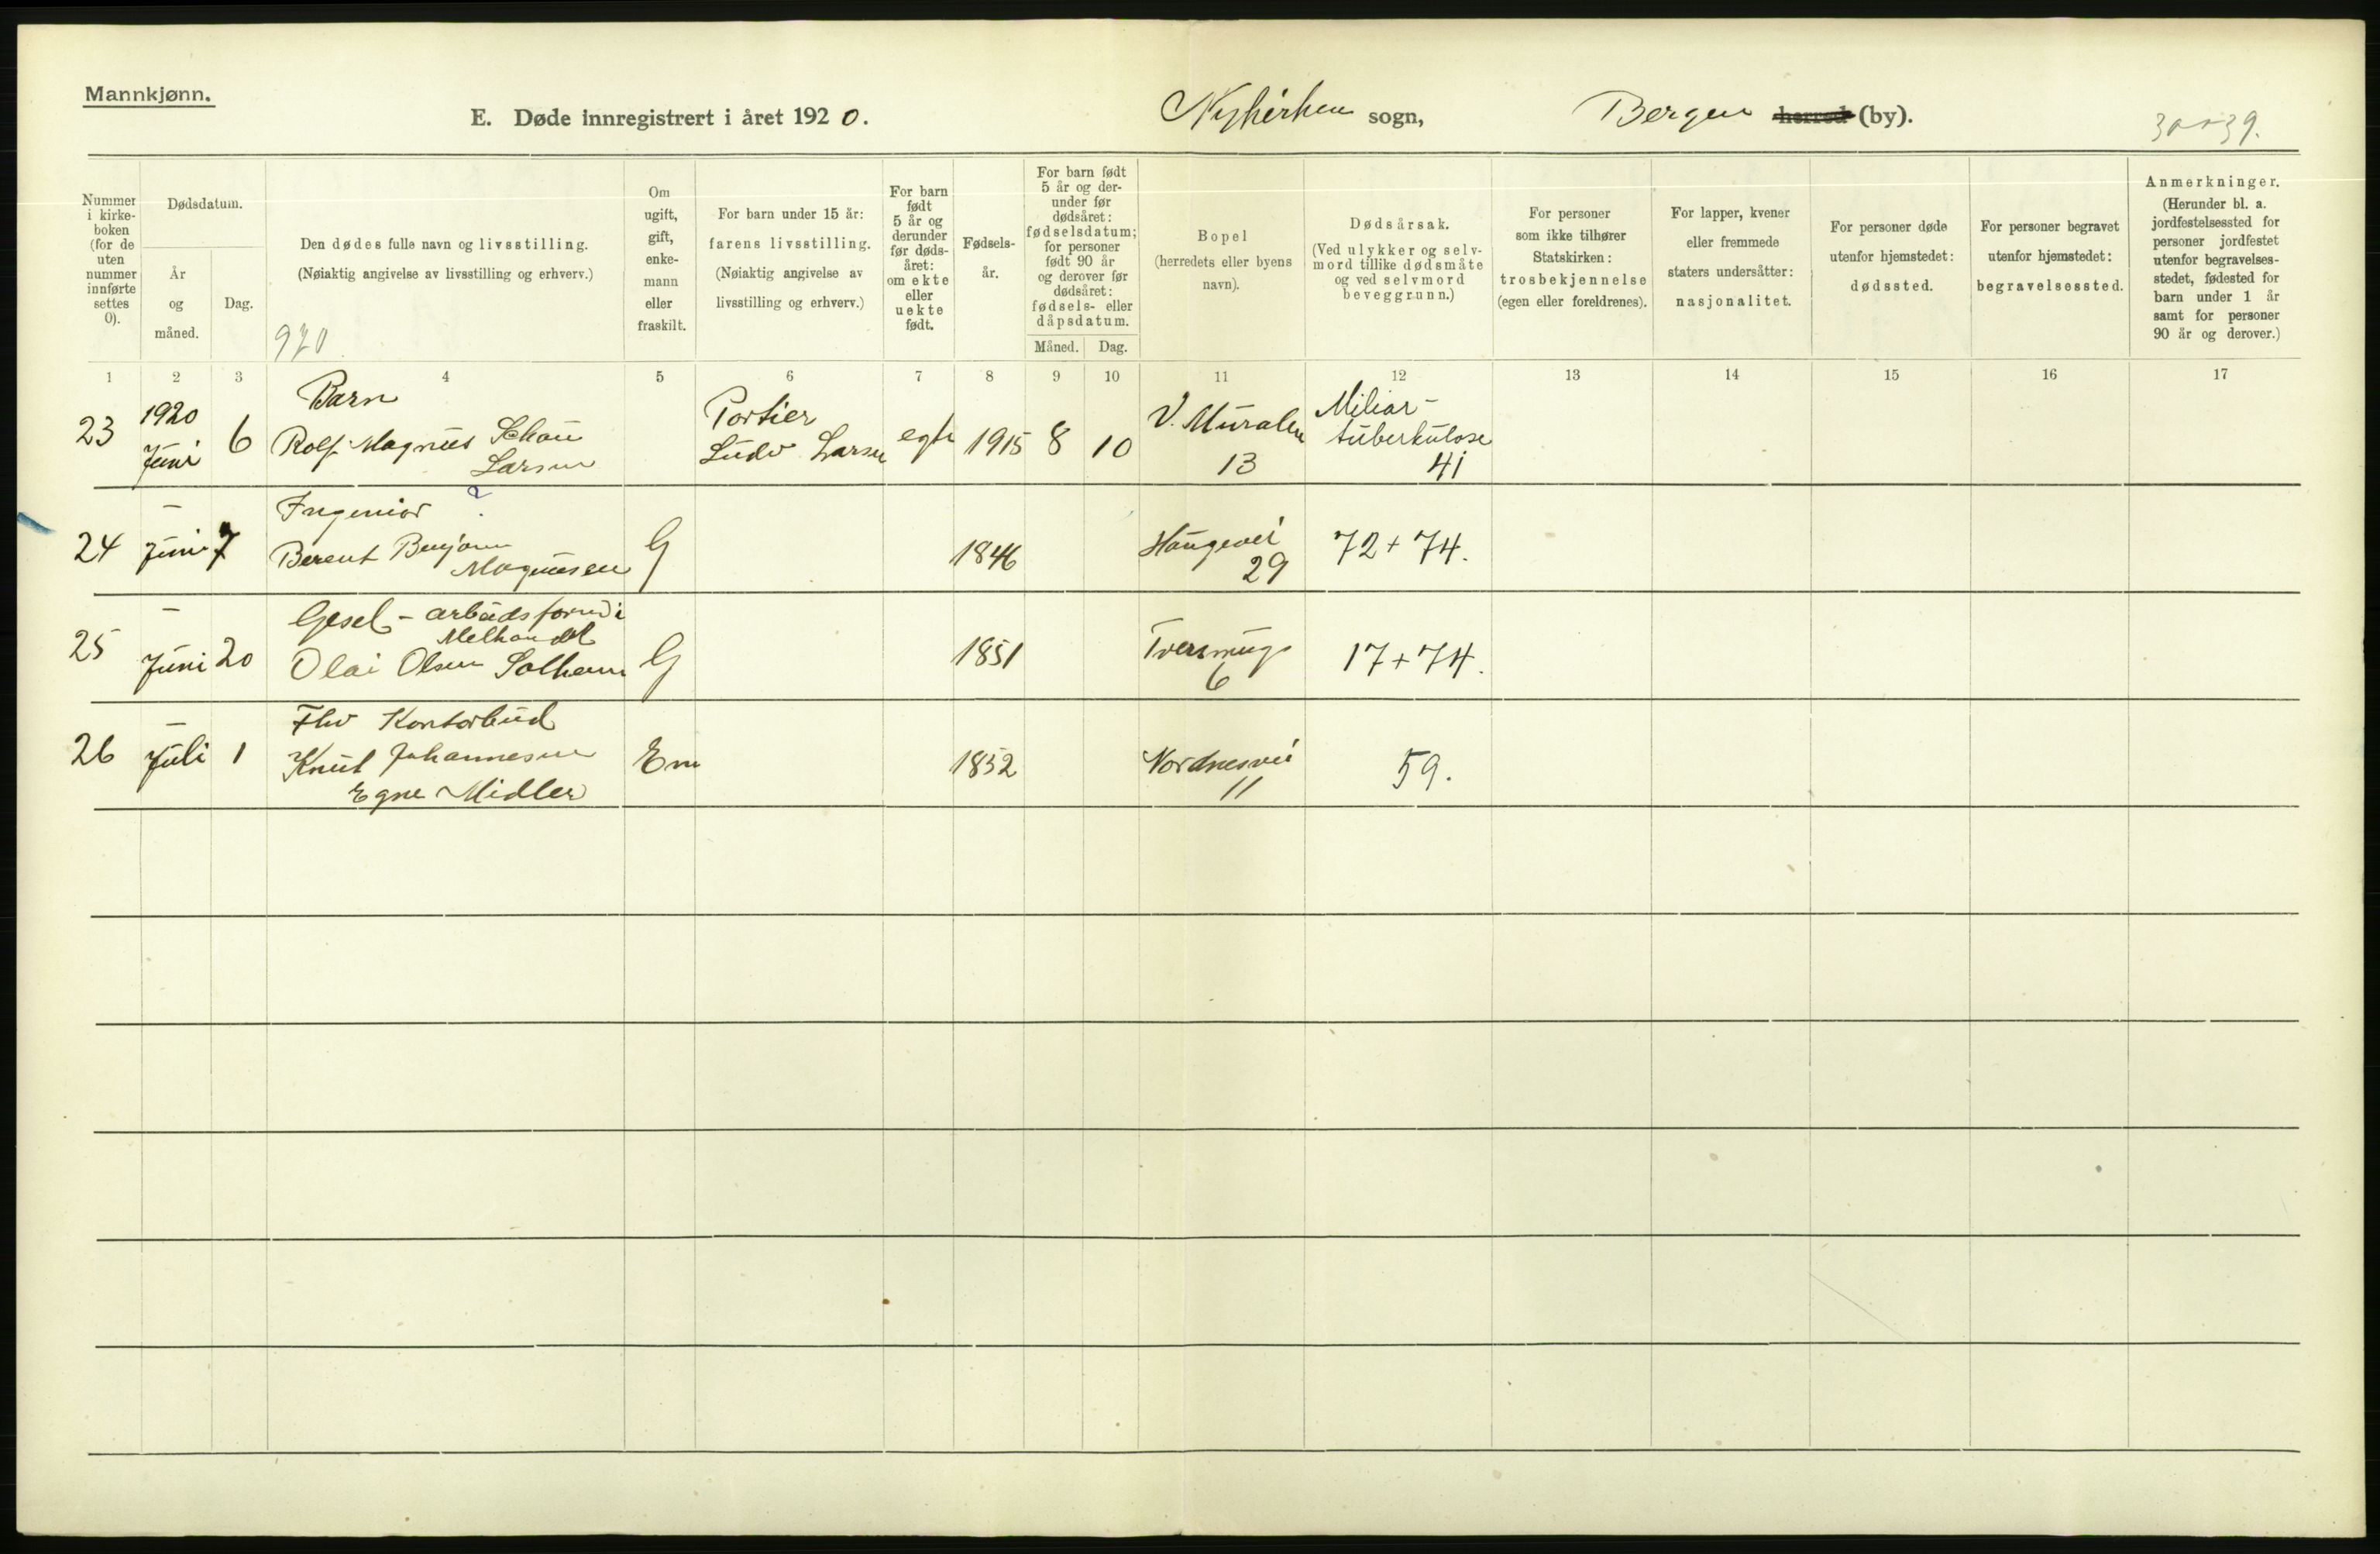 Mannkjønn.
E. Døde innregistrert i året 1920.
Nykirken sogn,
Bergen herred (by).
Nummer i kirke- boken (for de uten nummer innførte settes 0).
Dødsdatum.
År og måned.
Dag.
Den dødes fulle navn og livsstilling.
(Nøiaktig angivelse av livsstilling og erhverv.)
920
Om ugift, gift, enke- mann eller fraskilt.
For barn under 15 år:
farens livsstilling.
(Nøiaktig angivelse av
livsstilling og erhverv.)
For barn født 5 år og derunder før døds- året: om ekte eller uekte født.
Fødsels- år.
For barn født 5 år og der- under før dødsåret: fødselsdatum; for personer født 90 år og derover før dødsåret: fødsels- eller dåpsdatum.
Måned.
Dag.
Bopel
(herredets eller byens
navn).
Dødsårsak.
(Ved ulykker og selv-
mord tillike dødsmåte
og ved selvmord
beveggrunn.)
For personer
som ikke tilhører
Statskirken:
trosbekjennelse
(egen eller foreldrenes).
For lapper, kvener
eller fremmede
staters undersåtter:
nasjonalitet.
For personer døde
utenfor hjemstedet:
dødssted.
For personer begravet
utenfor hjemstedet:
begravelsessted.
Anmerkninger.
(Herunder bl. a.
jordfestelsessted for
personer jordfestet
utenfor begravelses-
stedet, fødested for
barn under 1 år
samt for personer
90 år og derover.)
1 2 3 4 5 6 7 8 9 10 11 12 13 14 15 16 17
23
1920
Juni
6
Barn
Rolf Magnus Schau
Larsen
Portier
Ludv Larsen
egte
1915
8
10
V. Muralm
13
Miliar-
tuberkulose
41
24
–
Juni
7
Ingeniør
?
Berent Benjam
Magnusen
G
1846
Haugevei
29
72 + 74.
25
–
Juni
20
Gesel - arbeidsform i
Melhandel
Olai Olsen Solheim
G
1851
Tversmug
6
17 + 74.
26
–
Juli
1
Fhv Kontorbud
Knut Johannesen
Egne Midler
Em
1852
Nordnesvei
11
59.